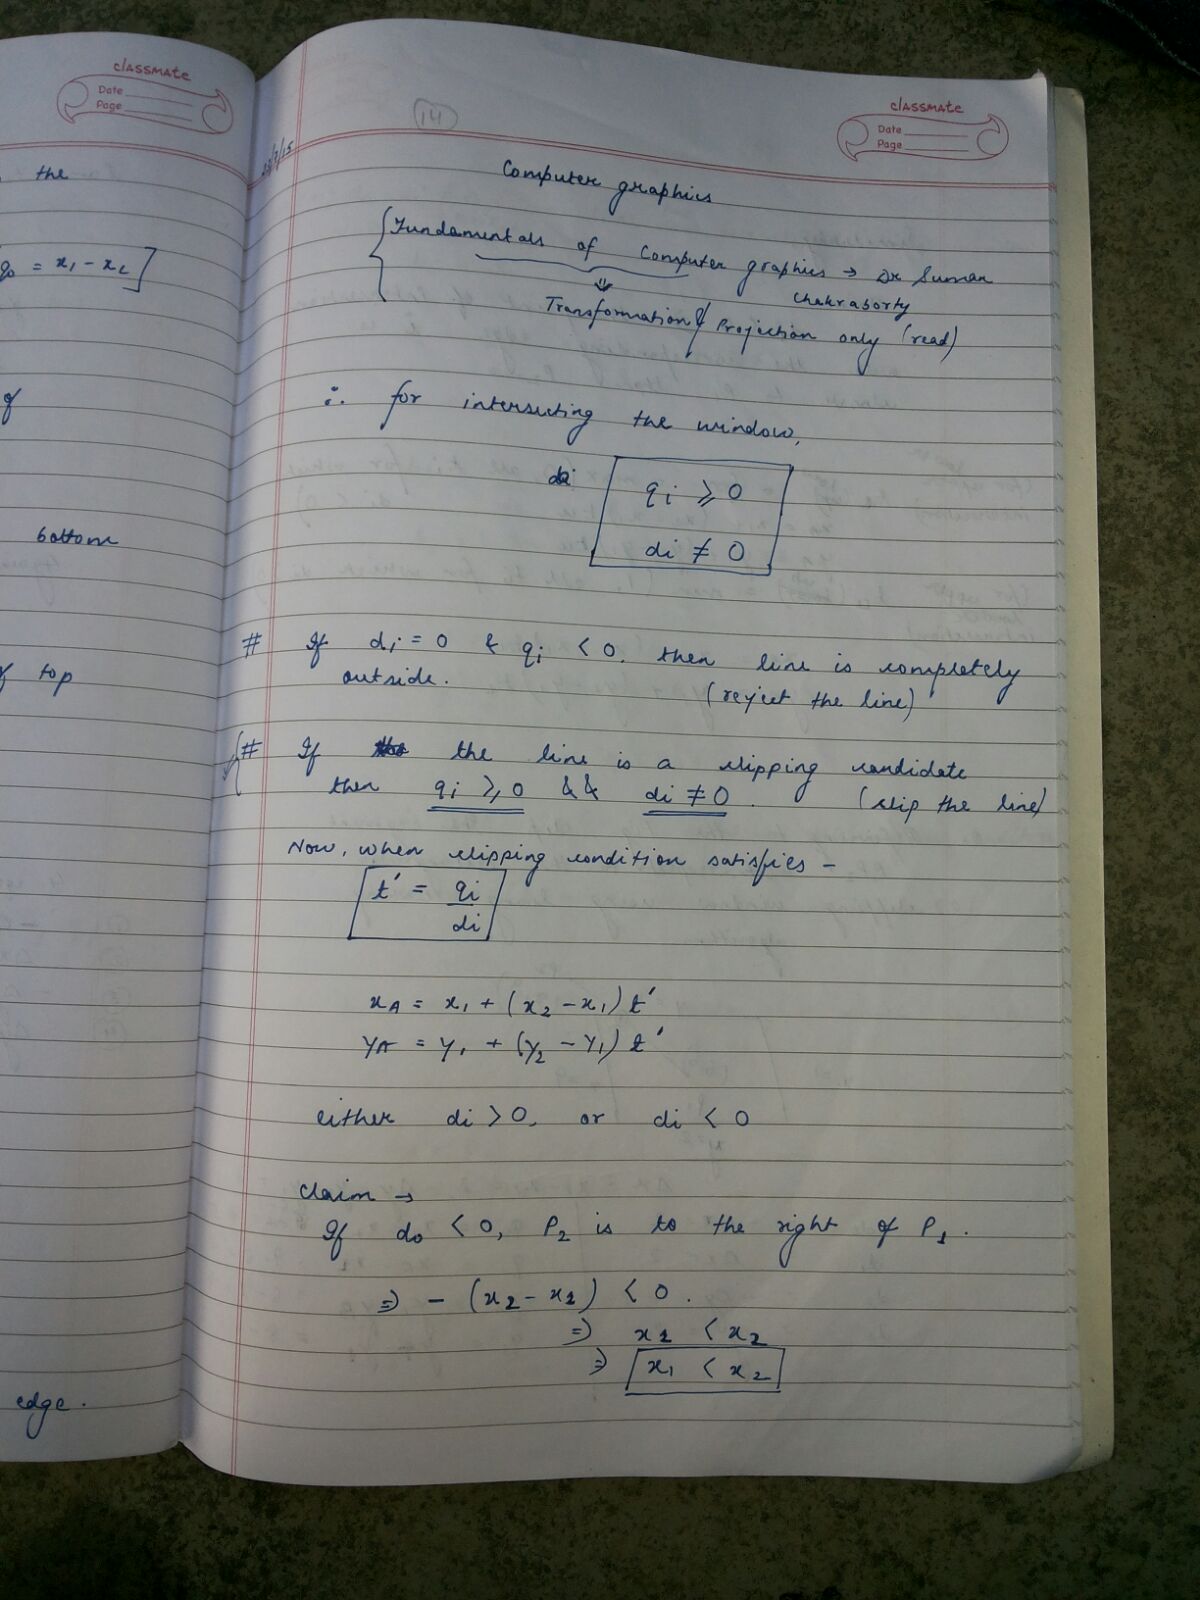 classmate
Date
Page
the
q0 = x1 - xL]
of
bottom
of top
edge.
classmate
Date
Page
14
23/7/15
Computer graphics
{Fundamentals of Computer graphics → Dr Suman
Chakraborty
⇓
Transformation & Projection only (read)
∴ for intersecting the window,
qi ≥ 0
di ≠ 0
# If di = 0 & qi < 0, then line is completely
outside. (reject the line)
# If the line is a clipping candidate
then qi ≥ 0 && di ≠ 0. (clip the line)
Now, when clipping condition satisfies -
t' = qi/di
xA = x1 + (x2 - x1) t'
yA = y1 + (y2 - y1) t'
either di > 0, or di < 0
Claim →
If do < 0, P2 is to the right of P1.
⇒ - (x2 - x1) < 0.
⇒ x1 < x2
⇒ x1 < x2